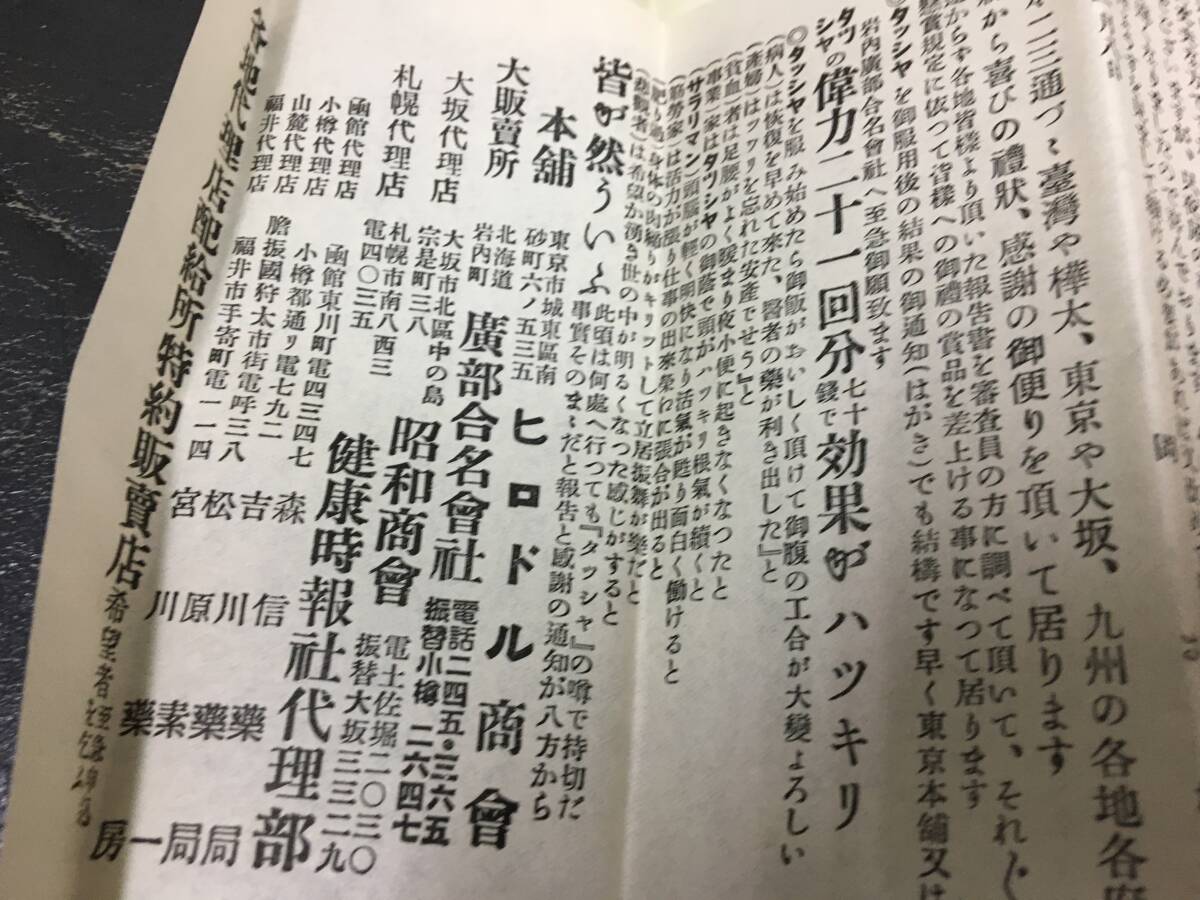 二三通づゝ臺灣や樺太、東京や大坂、九州の各地各府
から喜びの禮狀、感謝の御便りを頂いて居ります
からず各地皆樣より頂いた報告書を審査員の方に調べて頂いて、それ〲
懸賞規定に依つて皆樣への御禮の賞品を差上げる事になつて居ります
◎タッシャを御服用後の結果の御通知(はがき)でも結構です早く東京本舗又は
岩內廣部合名會社へ至急御願致ます
タッシャの偉力二十一回分七十錢で効果がハツキリ
◎タッシャを服み始めたら御飯がおいしく頂けて御腹の工合が大變よろしい
(病人)は恢復を早めて來た、醫者の藥が利き出した』と
(產婦)はツワリを忘れた安產でせう』と
(貧血)者は足腰がよく暖まり夜小便に起きなくなつたと
(事業)家はタッシャの御蔭で頭がハッキリ根氣が續くと
(サラリマン)頭腦が輕く明快になり活氣が甦り面白く働けると
(筋勞家)は活力が張り仕事の出來榮わに張合が出ると
(肥り過)身体の肉締りがキリットして立居振舞が樂だと
(悲觀者)は希望か湧き世の中が明るくなつた感じがすると
皆が然ういふ此頃は何處へ行つても『タッシャ』の噂で持切だ
事實そのまゝだと報告と感謝の通知が八方から
本舗 東京市城東區南砂町六ノ五三五 ヒロドル商會
大販賣所 北海道岩內町 廣部合名會社 電話二四五・三六五 振替小樽二六四七
大坂代理店 大坂市北區中の島宗是町三八 昭和商會 電土佐堀二〇三〇 振替大坂三三二九
札幌代理店 札幌市南八西三電四〇三五 健康時報社代理部
函館代理店 函館東川町電四三四七 森信藥局
小樽代理店 小樽都通り電七九二 吉川藥局
山麓代理店 膽振國狩太市街電呼三八 松原素一
福井代理店 福井市手寄町電一一四 宮川藥房
各地代理店配給所特約販賣店希望者